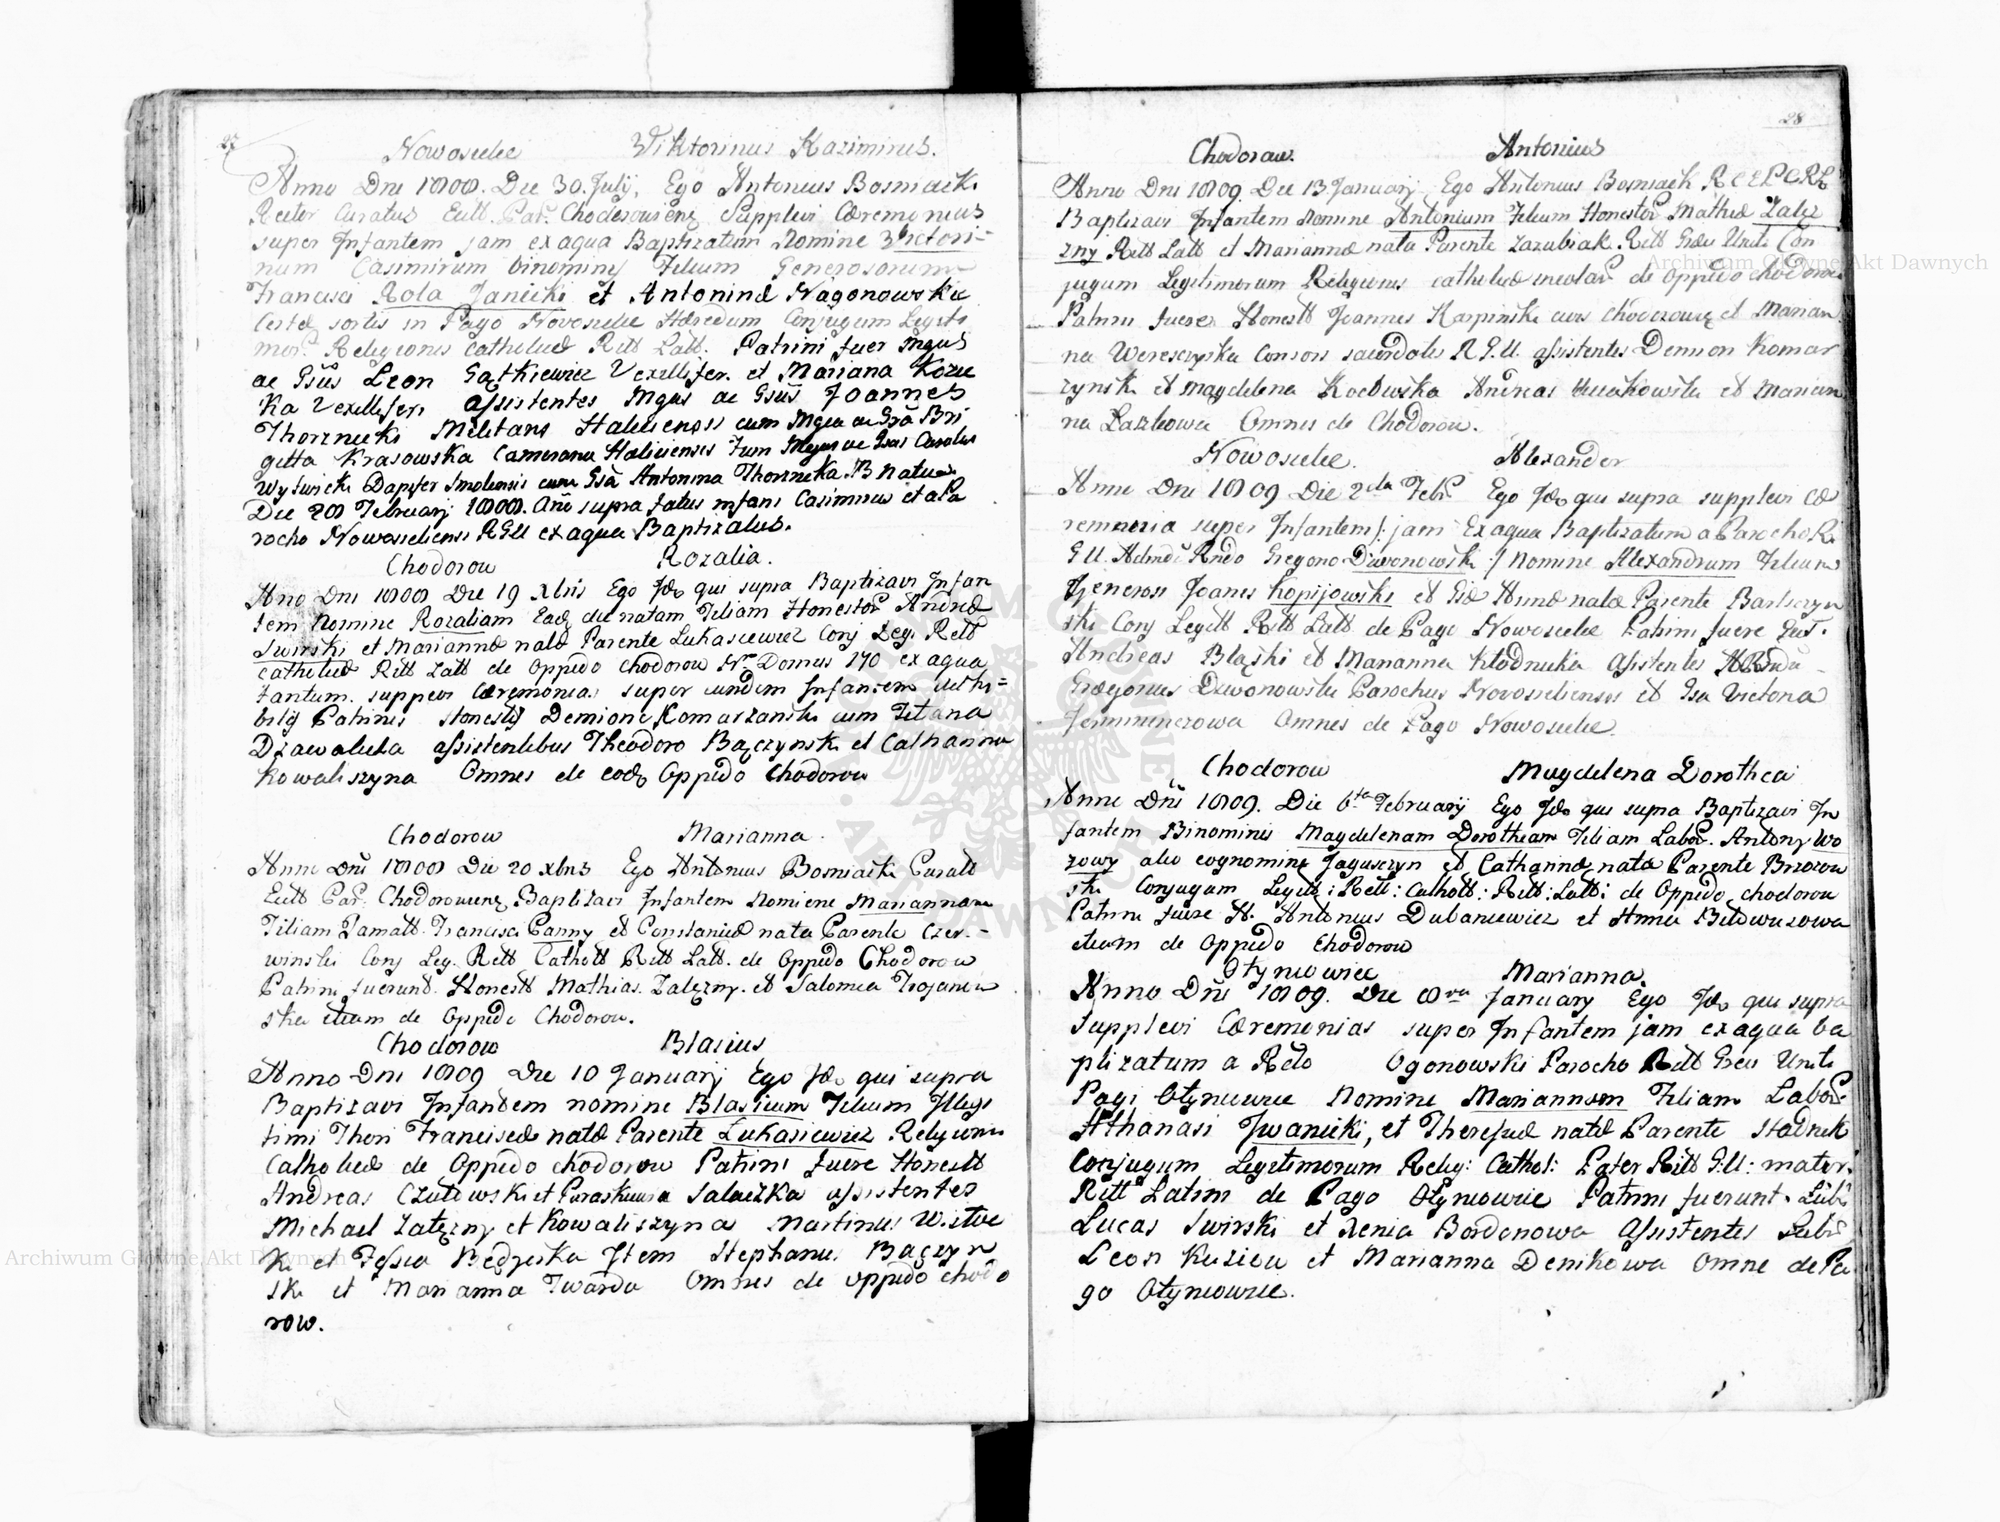 27
Nowosielce Wiktorinus Kazimirus.
Anno Dni 1808. Die 30. Julij, Ego Antonius Bosniacki
Rector Curatus Eccll. Par. Chodoroviens Supplevi Cæremonias
super Infantem jam ex aqua Baptizatum Nomine Victori=
num Casimirum binominis Filium Generosorum
Francisci Rola Janicki et Antoninæ Nagonowskie
Certæ sortis in Pago Novosielce Hæredum Conjugum Legiti
mor. Religionis Catholicæ Ritt Latt. Patrini fuer Mgus
ac Gsus Leon Gątkiewicz Vexillifer. et Mariana Kozic
ka Vexilliferi assistentes Mgus ac Gsus Joannes
Thorznicki Militans Haliciensis cum Mgca ac Gsa Bri
gitta Krasowska Camerana Haliciensis Tum Mgus ac Gsus Carolus
Wyswicki Dapifer Smolensis cum Gsa Antonina Thorznicka. NB natus
Die 28 Februarij 1808. Ano supra fatus infans Casimirus et a Pa
rocho Nowosieliensi RGU ex aqua Baptizatus.
Chodorow Rozalia.
Ano Dni 1808 Die 19 Xbris Ego Id qui supra Baptizavi Infan
tem Nomine Rozaliam Eadj die natam Filiam Honestor Andreæ
Swirski et Mariannæ natæ Parente Lukasiewicz Conj Leg. Rell
Catholicæ Ritt Latt de Oppido Chodorow Nro Domus 170 ex aqua
tantum. supplevi Cæremonias super eundem Infantem adhi=
bitis Patrinis Honestis Demione Komarzanski cum Tetiana
Dzawalicka assistentibus Theodoro Bączynski et Catharina
Kowaliszyna Omnes de eod Oppido Chodorow
Chodorow Marianna.
Anno Dni 1808 Die 20 Xbris Ego Antonius Bosniacki Curatt
Eccll Par. Chodoroviens Baptizavi Infantem Nomine Mariannam
Filiam Famatt. Francisci Panny et Constanciæ nata Parente Czer.=
winski Conj Leg. Rell Catholl Ritt Latt. de Oppido Chodorow
Patrini fuerunt. Honestt Mathias Zalęzny. et Salomea Trojanow
ska etiam de Oppido Chodorow.
Chodorow Blasius
Anno Dni 1809 Die 10 Januarij Ego Id qui supra
Baptizavi Infantem nomine Blasium Filium Illegi
timi Thori Franciscæ natæ Parente Lukasiewicz Religionis
Catholicæ de Oppido Chodorow Patrini fuere Honestt
Andreas Czutowski et Paraskewia Salaczka assistentes
Michael Zatęzny et Kowaliszyna Martinus Wistoc
ki et Tessia Bedryska Item Stephanus Bączyn
ski et Marianna Twarda Omnes de oppido Chodo
row.
28
Chodorow. Antonius
Anno Dni 1809 Die 13 Januarij Ego Antonius Bosniack R C E P C R L
Baptizavi Infantem Nomine Antonium Filium Honestor Mathiæ Zalęz
zny Ritt Latt et Mariannæ nata Parente Zazubiak Ritt Græc Uniti Con
jugum Legitimorum Religionis catholicæ incolar de Oppido Chodorow
Patrini fuere Honestt Joannes Karpinski civis Chodorowie et Marian
na Wereszynska Consors sacerdotis R G.U. assistentes Demion Komar
zynski et Magdelena Kocbuska Andreas et Marian
na Laszkowa Omnes de Chodorow.
Nowosielce. Alexander
Anno Dni 1809 Die 2da Febr Ego Id qui supra supplevi Cæ
remonia super Infantem /: jam Ex aqua Baptizatum a Parocho R:
G.U. Admdu Rndo Gregorio Dzwonowski :/ Nomine Alexandrum Filium
Generosi Joanis Kopijowski et Gsæ Annæ natæ Parente Bartszyn
ski Conj Legitt Ritt Latt de Pago Nowosielce Patrini fuere Gus.
Andreas Blaski et Marianna Kłodnicka Assistentes ARndu
Gregorius Dzwonowski Parochus Novosieliensis et Gsa Victoria
Jemminczowa Omnes de Pago Nowosielce.
Chodorow Magdelena Dorothea
Anno Dni 1809. Die 6ta Februarij Ego Id qui supra Baptizavi In
fantem Binominis Magdelenam Dorotheam Filiam Labor. Antonij Wo
zowy alio cognomine Jaguszyn et Catharinæ nata Parente Brzozow
ski Conjugum Legitt: Rell: Catholl: Ritt: Latt: de Oppido Chodorow
Patrini fuere H. Antonius Dubaniewicz et Anna Bitowuzowa
etiam de Oppido Chodorow
Otyniowice Marianna.
Anno Dni 1809. Die 8va January Ego Id qui supra
Supplevi Cæremonias super Infantem jam ex aqua ba
ptizatum a Rdo Ogonowski Parocho Ritt Græci Uniti
Pagi Otyniowice Nomine Mariannam Filiam Labor.
Athanasi Iwanicki, et Theresiæ natæ Parente Hadnik
Conjugum Legitimorum Relig: Cathol: Pater Ritt G:U: mater.
Ritt Latini de Pago Otyniowice Patrini fuerunt. Labr
Lucas Swirski et Xenia Bordonowa Assistentes Labr
Leon Kuzien et Marianna Denikowa Omne de Pa
go Otyniowice.
Archiwum Główne Akt Dawnych
Archiwum Główne Akt Dawnych
ARCHIWUM GŁÓWNE AKT DAWNYCH